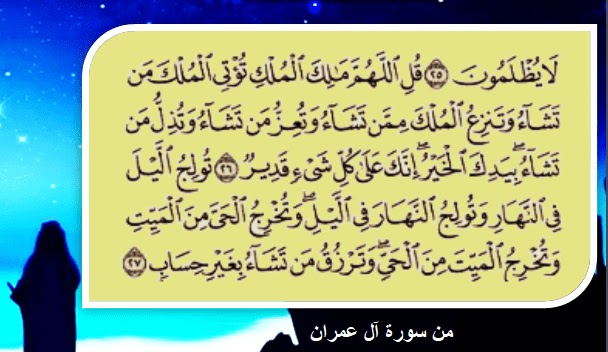 لَا يُظْلَمُونَ ٢٥ قُلِ ٱللَّهُمَّ مَـٰلِكَ ٱلْمُلْكِ تُؤْتِى ٱلْمُلْكَ مَن
تَشَآءُ وَتَنزِعُ ٱلْمُلْكَ مِمَّن تَشَآءُ وَتُعِزُّ مَن تَشَآءُ وَتُذِلُّ مَن
تَشَآءُۖ بِيَدِكَ ٱلْخَيْرُۖ إِنَّكَ عَلَىٰ كُلِّ شَىْءٍ قَدِيرٌ ٢٦ تُولِجُ ٱلَّيْلَ
فِى ٱلنَّهَارِ وَتُولِجُ ٱلنَّهَارَ فِى ٱلَّيْلِۖ وَتُخْرِجُ ٱلْحَىَّ مِنَ ٱلْمَيِّتِ
وَتُخْرِجُ ٱلْمَيِّتَ مِنَ ٱلْحَىِّۖ وَتَرْزُقُ مَن تَشَآءُ بِغَيْرِ حِسَابٍ ٢٧
من سورة آل عمران